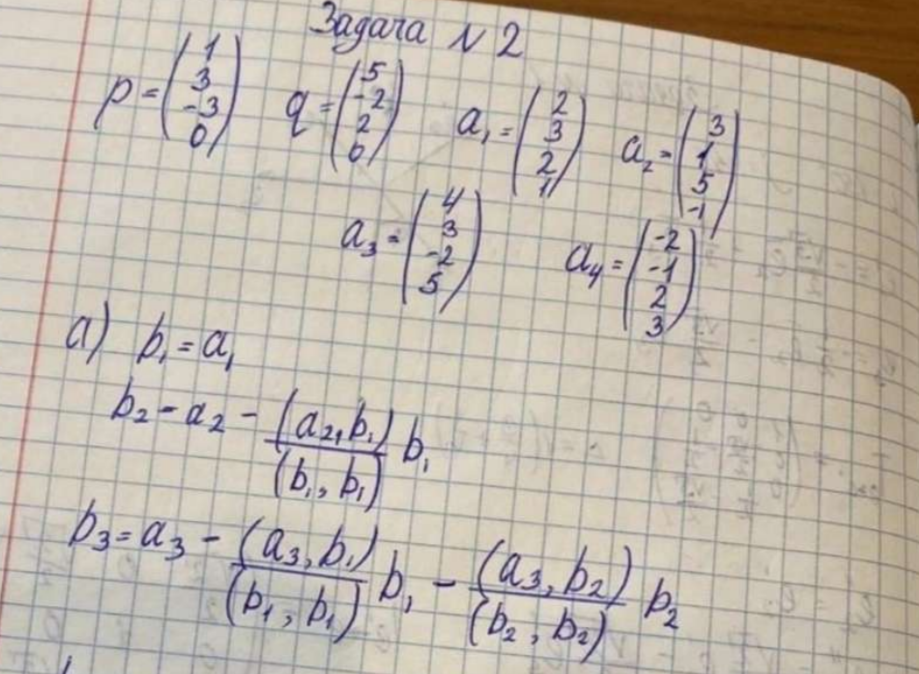 Задача №2
p = (1 3 -3 0) q = (5 -2 2 0) a₁ = (2 3 2 1) a₂ = (3 1 5 -1)
a₃ = (4 3 -2 5) a₄ = (-2 -1 2 3)
а) b₁ = a₁
b₂ - a₂ - (a₂, b₁)/(b₁, b₁) b₁
b₃ = a₃ - (a₃, b₁)/(b₁, b₁) b₁ - (a₃, b₂)/(b₂, b₂) b₂